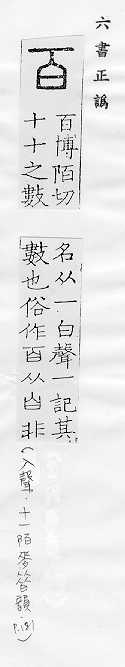 六書正譌
百
百博陌切
十十之數
名从一白聲一記其
數也俗作百从自非
(入聲.十一陌麥昔韻.P.181)